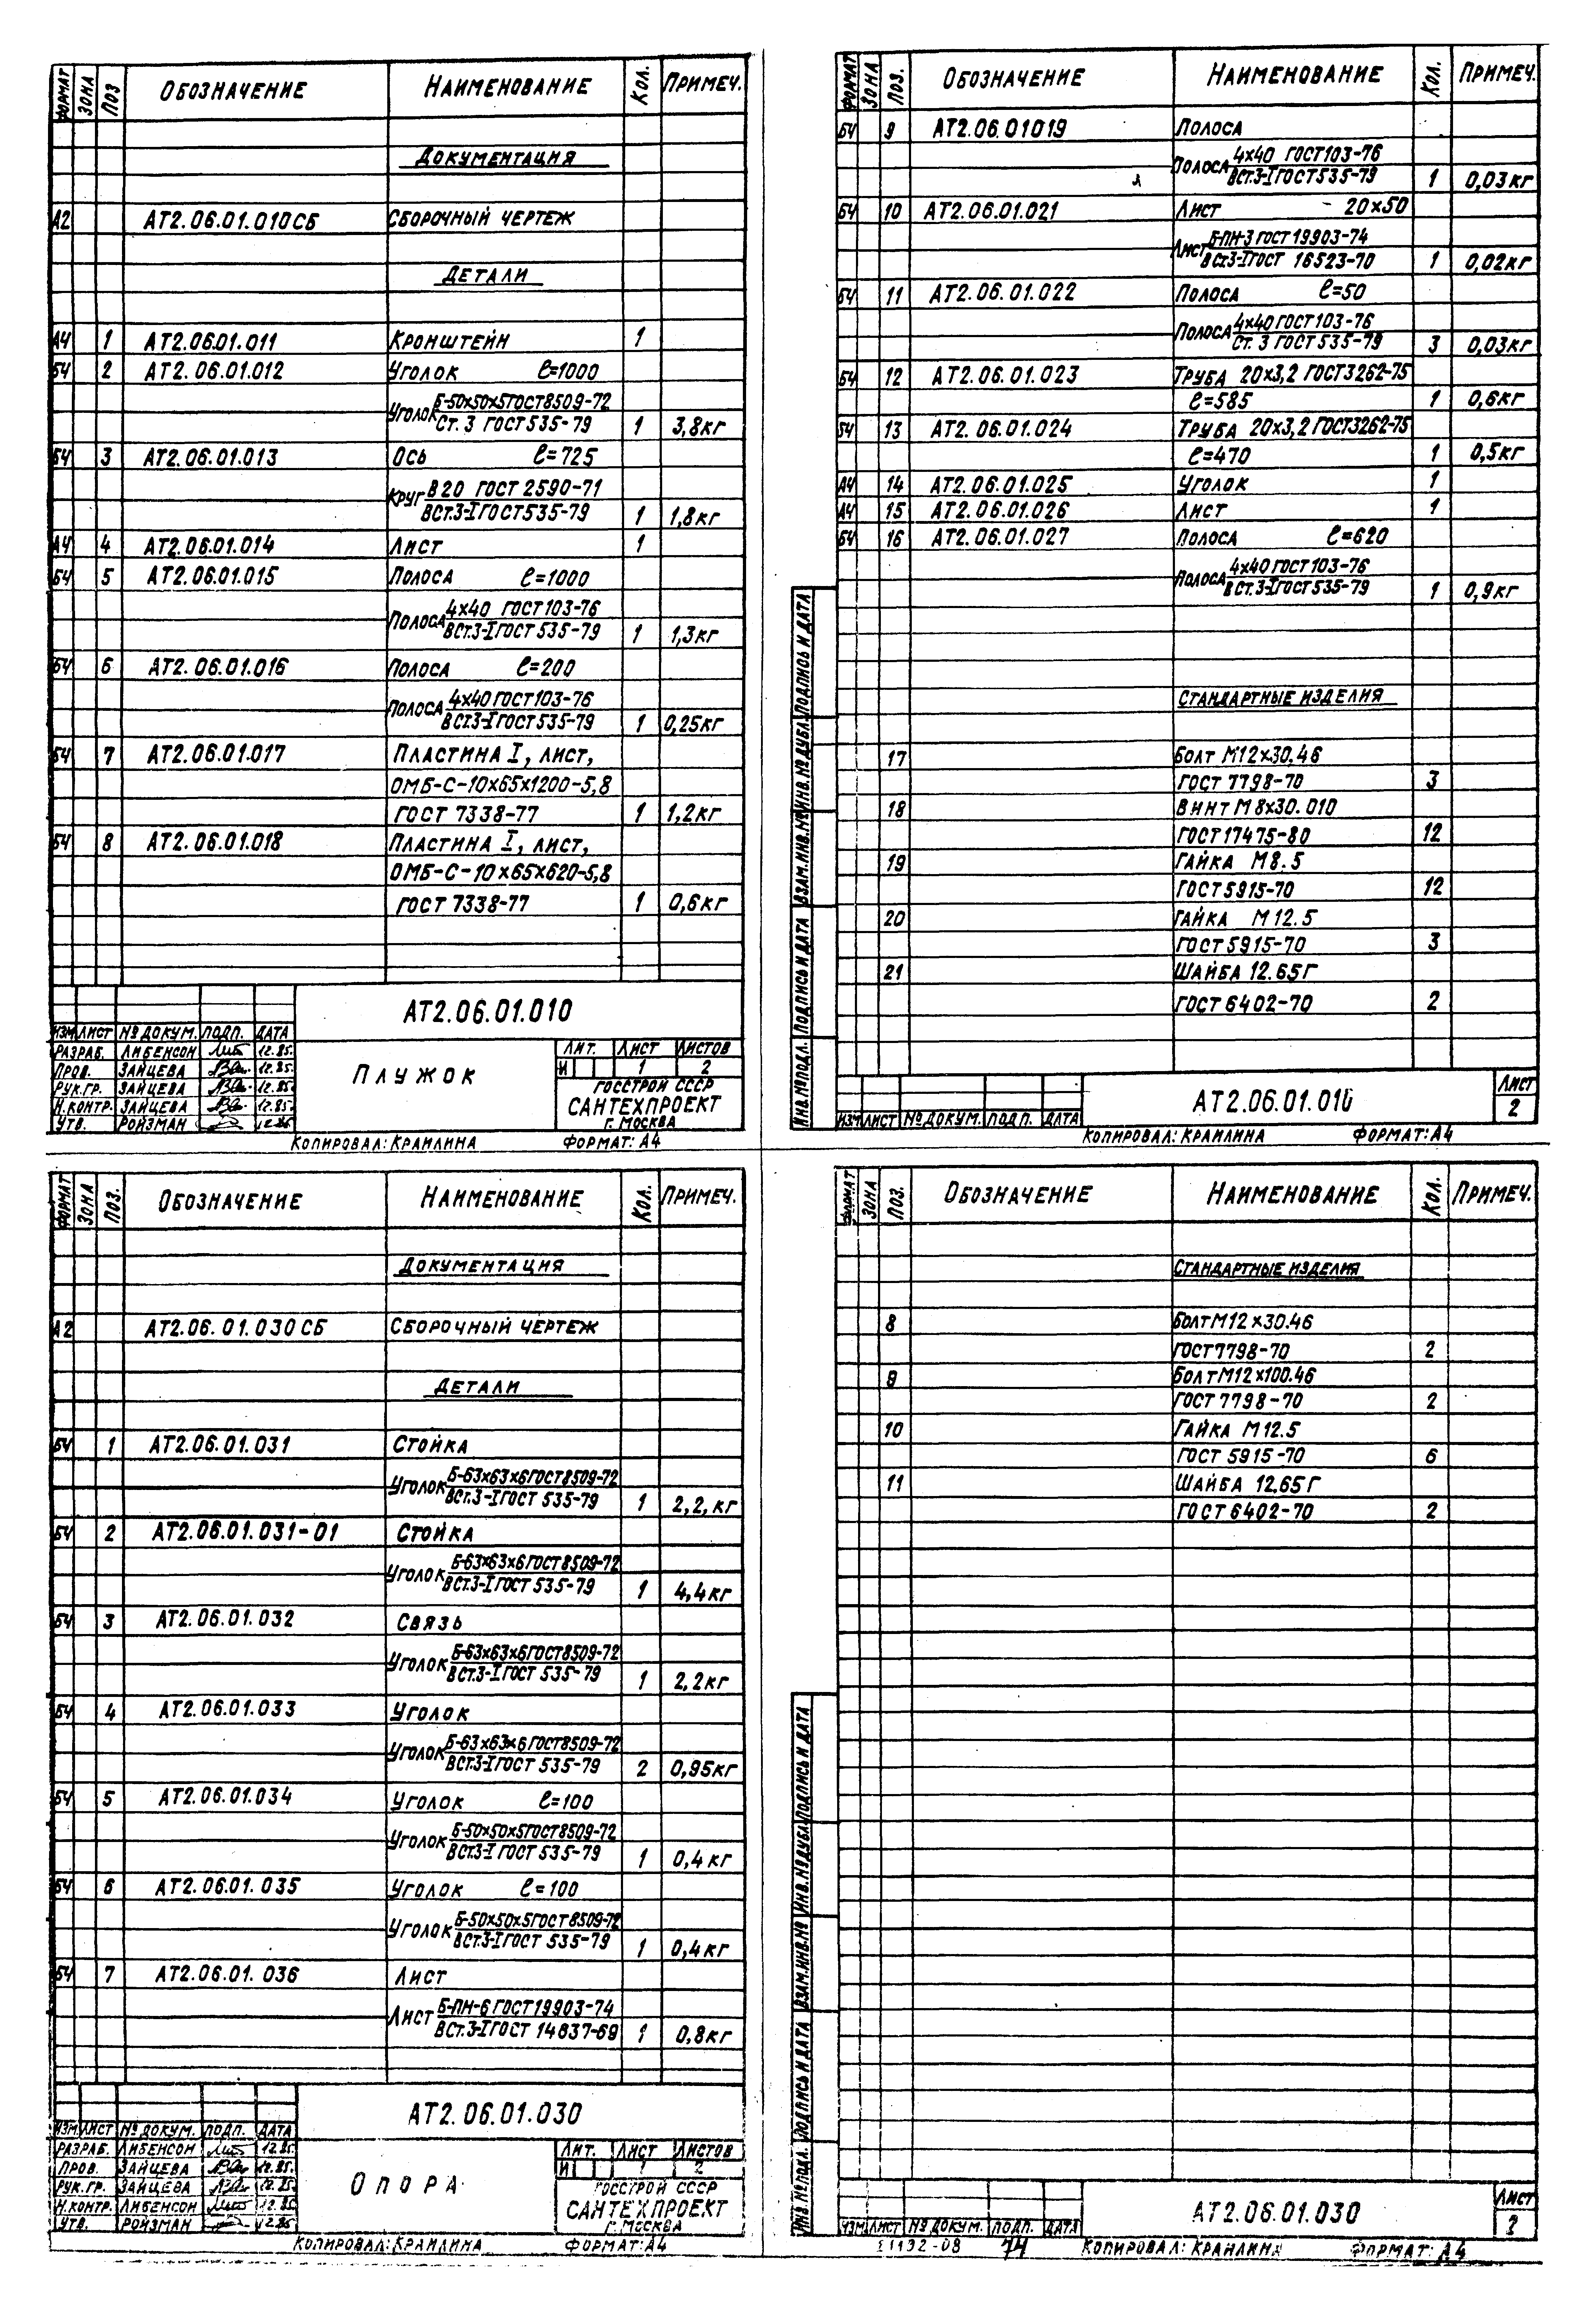 ФОРМАТ ЗОНА ПОЗ ОБОЗНАЧЕНИЕ НАИМЕНОВАНИЕ КОЛ. ПРИМЕЧ.
ДОКУМЕНТАЦИЯ
А2 АТ2.06.01.010СБ СБОРОЧНЫЙ ЧЕРТЕЖ
ДЕТАЛИ
А4 1 АТ2.06.01.011 КРОНШТЕЙН 1
БЧ 2 АТ2.06.01.012 УГОЛОК ℓ=1000
УГОЛОК Б-50х50х5ГОСТ8509-72
Ст. 3 ГОСТ535-79 1 3,8кг
БЧ 3 АТ2.06.01.013 ОСЬ ℓ=725
КРУГ В20 ГОСТ 2590-71
ВСт.3-IГОСТ535-79 1 1,8кг
А4 4 АТ2.06.01.014 ЛИСТ 1
БЧ 5 АТ2.06.01.015 ПОЛОСА ℓ=1000
ПОЛОСА 4х40 ГОСТ103-76
ВСт.3-IГОСТ 535-79 1 1,3кг
БЧ 6 АТ2.06.01.016 ПОЛОСА ℓ=200
ПОЛОСА 4х40ГОСТ103-76
ВСт3-IГОСТ535-79 1 0,25кг
БЧ 7 АТ2.06.01.017 ПЛАСТИНА I, ЛИСТ,
ОМБ-С-10х65х1200-5,8
ГОСТ 7338-77 1 1,2кг
БЧ 8 АТ2.06.01.018 ПЛАСТИНА I, ЛИСТ,
ОМБ-С-10х65х620-5,8
ГОСТ 7338-77 1 0,6кг
АТ2.06.01.010
ИЗМ ЛИСТ № ДОКУМ. ПОДП. ДАТА
РАЗРАБ. ЛИБЕНСОН 12.85.
ПРОВ. ЗАЙЦЕВА 12.85.
РУК.ГР. ЗАЙЦЕВА 12.85.
Н.КОНТР. ЗАЙЦЕВА 12.85.
УТВ. РОЙЗМАН 12.85
ПЛУЖОК
ЛИТ. ЛИСТ ЛИСТОВ
И 1 2
ГОССТРОЙ СССР
САНТЕХПРОЕКТ
Г. МОСКВА
КОПИРОВАЛ: КРАИЛИНА ФОРМАТ: А4
ФОРМАТ ЗОНА ПОЗ. ОБОЗНАЧЕНИЕ НАИМЕНОВАНИЕ КОЛ. ПРИМЕЧ.
БЧ 9 АТ2.06.01019 ПОЛОСА
ПОЛОСА 4х40 ГОСТ103-76
ВСт.3-IГОСТ535-79 1 0,03кг
БЧ 10 АТ2.06.01.021 ЛИСТ - 20х50
ЛИСТ Б-ПН-3 ГОСТ19903-74
ВСт3-IГОСТ 16523-70 1 0,02кг
БЧ 11 АТ2.06.01.022 ПОЛОСА ℓ=50
ПОЛОСА 4х40ГОСТ103-76
Ст. 3 ГОСТ535-79 3 0,03кг
БЧ 12 АТ2.06.01.023 ТРУБА 20х3,2 ГОСТ3262-75
ℓ=585 1 0,6кг
БЧ 13 АТ2.06.01.024 ТРУБА 20х3,2ГОСТ3262-75
ℓ=470 1 0,5кг
А4 14 АТ2.06.01.025 УГОЛОК 1
А4 15 АТ2.06.01.026 ЛИСТ 1
БЧ 16 АТ2.06.01.027 ПОЛОСА ℓ=620
ПОЛОСА 4х40ГОСТ103-76
ВСт.3-IГОСТ535-79 1 0,9кг
СТАНДАРТНЫЕ ИЗДЕЛИЯ
17 БОЛТ М12х30.46
ГОСТ 7798-70 3
18 ВИНТ М8х30.010
ГОСТ17475-80 12
19 ГАЙКА М8.5
ГОСТ5915-70 12
20 ГАЙКА М12.5
ГОСТ5915-70 3
21 ШАЙБА 12.65Г
ГОСТ 6402-70 2
ИНВ.№ПОДЛ. ПОДПИСЬ И ДАТА ВЗАМ.ИНВ.№ ИНВ.№ДУБЛ. ПОДПИСЬ И ДАТА
ИЗМ ЛИСТ № ДОКУМ. ПОДП. ДАТА
АТ2.06.01.010
ЛИСТ
2
КОПИРОВАЛ: КРАИЛИНА ФОРМАТ: А4
ФОРМАТ ЗОНА ПОЗ. ОБОЗНАЧЕНИЕ НАИМЕНОВАНИЕ КОЛ. ПРИМЕЧ.
ДОКУМЕНТАЦИЯ
А2 АТ2.06.01.030СБ СБОРОЧНЫЙ ЧЕРТЕЖ
ДЕТАЛИ
БЧ 1 АТ2.06.01.031 СТОЙКА
УГОЛОК Б-63х63х6ГОСТ8509-72
ВСт.3-IГОСТ 535-79 1 2,2, кг
БЧ 2 АТ2.06.01.031-01 СТОЙКА
УГОЛОК Б-63х63х6ГОСТ8509-72
ВСт.3-IГОСТ 535-79 1 4,4кг
БЧ 3 АТ2.06.01.032 СВЯЗЬ
УГОЛОК Б-63х63х6ГОСТ8509-72
ВСт.3-IГОСТ 535-79 1 2,2кг
БЧ 4 АТ2.06.01.033 УГОЛОК
УГОЛОК Б-63х63х6ГОСТ8509-72
ВСт.3-IГОСТ 535-79 2 0,95кг
БЧ 5 АТ2.06.01.034 УГОЛОК ℓ=100
УГОЛОК Б-50х50х5ГОСТ8509-72
ВСт.3-I ГОСТ 535-79 1 0,4кг
БЧ 6 АТ2.06.01.035 УГОЛОК ℓ=100
УГОЛОК Б-50х50х5ГОСТ8509-72
ВСт.3-IГОСТ 535-79 1 0,4кг
БЧ 7 АТ2.06.01.036 ЛИСТ
ЛИСТ Б-ПН-6 ГОСТ19903-74
ВСт.3-IГОСТ 14637-69 1 0,8кг
АТ2.06.01.030
ИЗМ ЛИСТ № ДОКУМ. ПОДП. ДАТА
РАЗРАБ. ЛИБЕНСОН 12.85.
ПРОВ. ЗАЙЦЕВА 12.85.
РУК.ГР. ЗАЙЦЕВА 12.85.
Н.КОНТР. ЛИБЕНСОН 12.85
УТВ. РОЙЗМАН 12.85
ОПОРА
ЛИТ. ЛИСТ ЛИСТОВ
И 1 2
ГОССТРОЙ СССР
САНТЕХПРОЕКТ
Г. МОСКВА
КОПИРОВАЛ: КРАИЛИНА ФОРМАТ: А4
ФОРМАТ ЗОНА ПОЗ. ОБОЗНАЧЕНИЕ НАИМЕНОВАНИЕ КОЛ. ПРИМЕЧ.
СТАНДАРТНЫЕ ИЗДЕЛИЯ
8 БОЛТ М12х30.46
ГОСТ7798-70 2
9 БОЛТ М12х100.46
ГОСТ 7798-70 2
10 ГАЙКА М12.5
ГОСТ 5915-70 6
11 ШАЙБА 12.65Г
ГОСТ 6402-70 2
ИНВ.№ПОДЛ. ПОДПИСЬ И ДАТА ВЗАМ.ИНВ.№ ИНВ.№ДУБЛ. ПОДПИСЬ И ДАТА
ИЗМ ЛИСТ № ДОКУМ. ПОДП. ДАТА
АТ2.06.01.030
ЛИСТ
2
74 КОПИРОВАЛ: КРАИЛИНА ФОРМАТ: А4